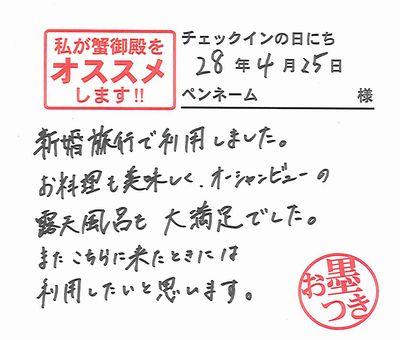 私が蟹御殿を
オススメ
します!!
チェックインの日にち
28年4月25日
ペンネーム 様
新婚旅行で利用しました。
お料理も美味しく、オーシャンビューの
露天風呂も大満足でした。
またこちらに来たときには
利用したいと思います。
お墨つき